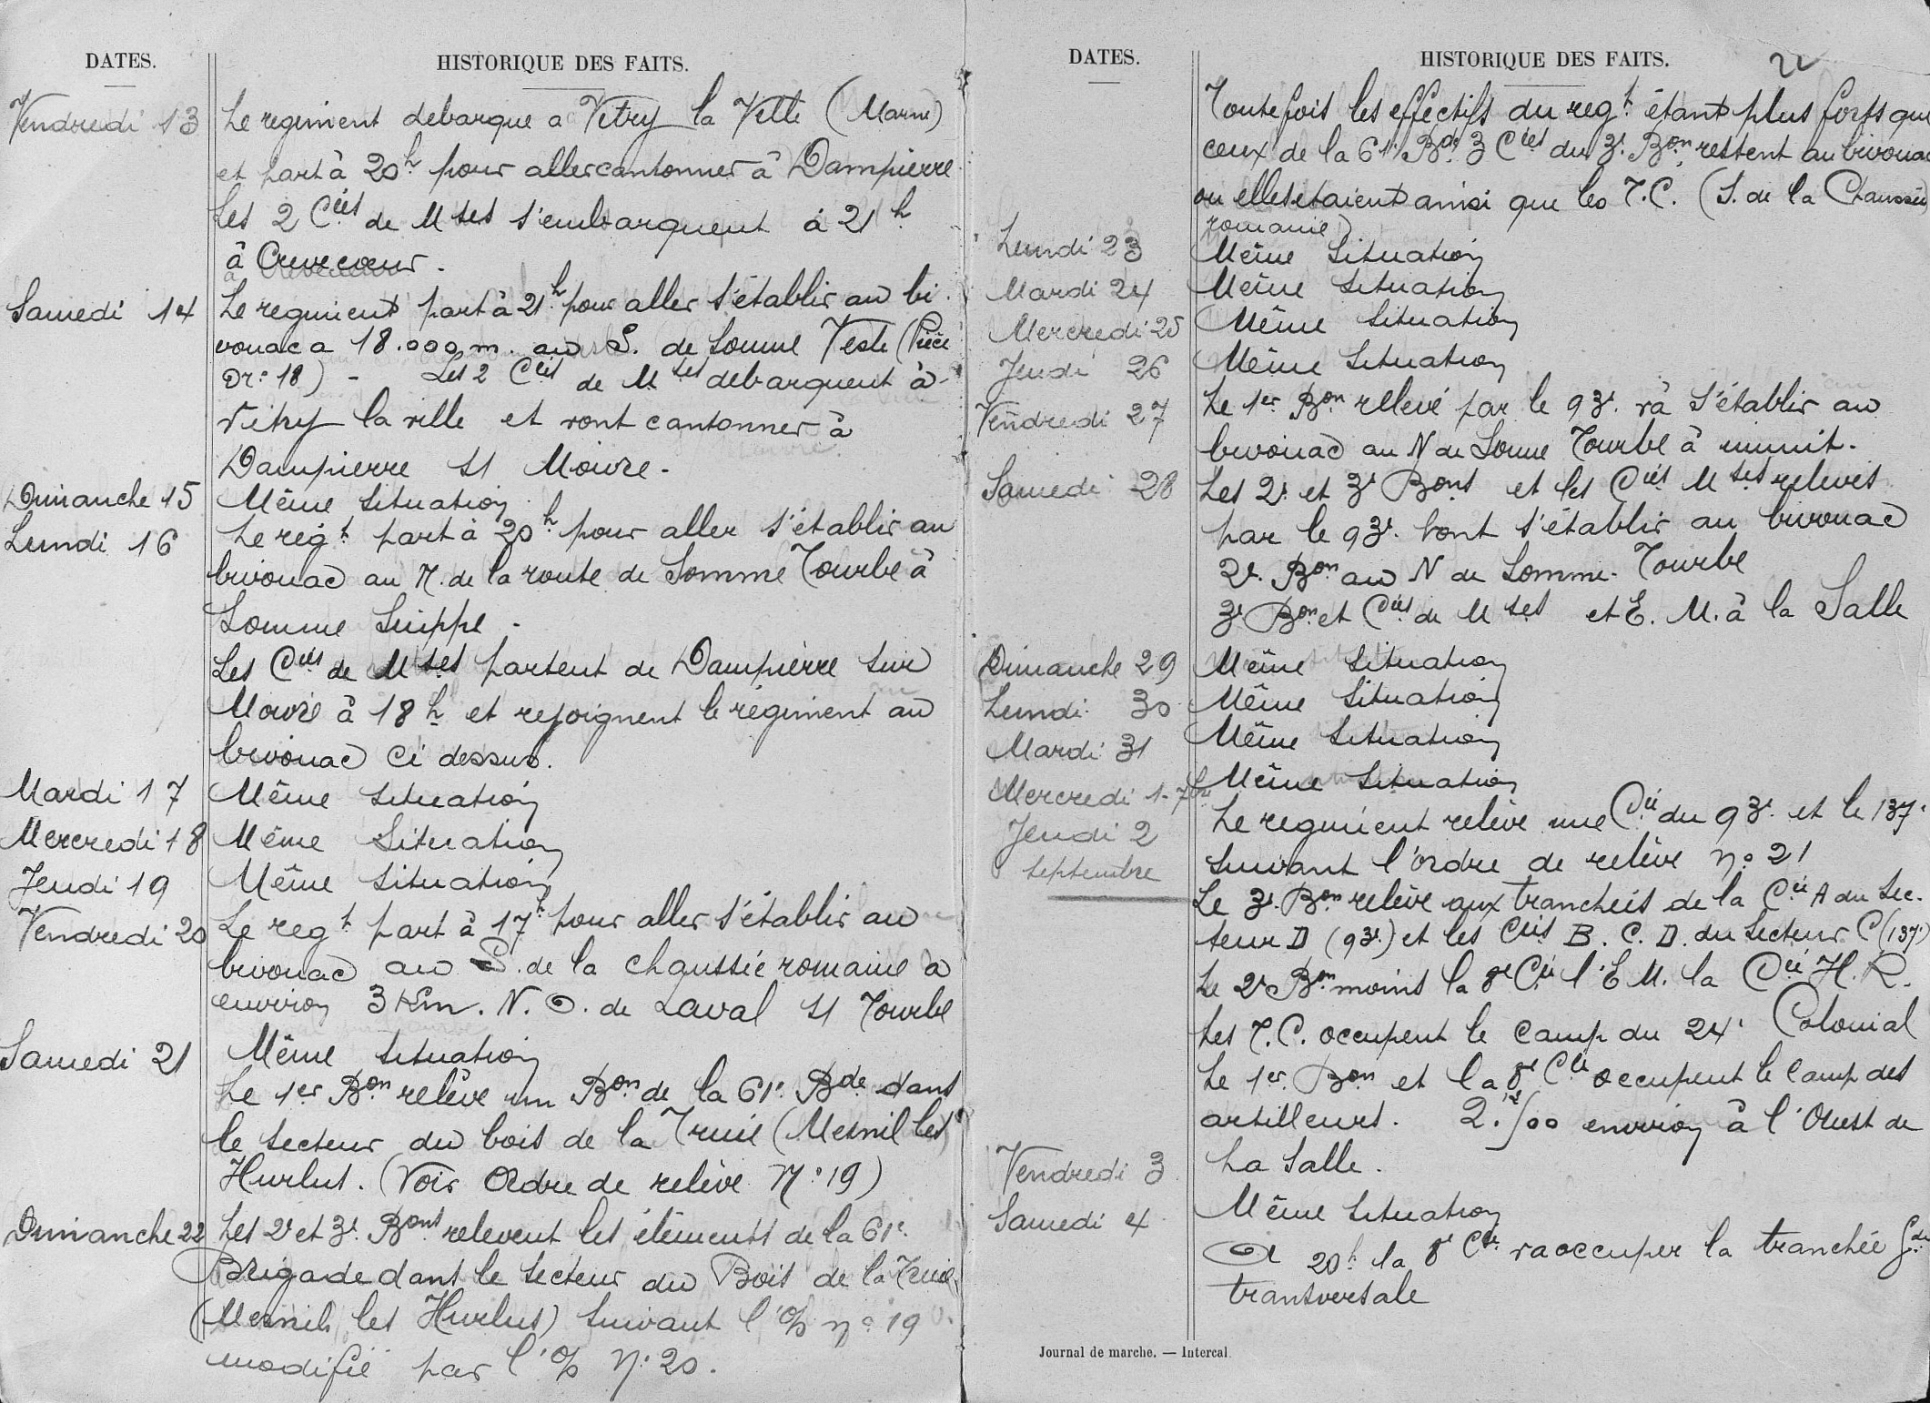 DATES.
HISTORIQUE DES FAITS.
Vendredi 13
Le regiment debarque a Vitry la Ville (Marne)
et part à 20h pour aller cantonner à Dampierre
Les 2 Cies de Mses s'embarquent à 21h
à Crevecœur.
Samedi 14
Le regiment part à 21h pour aller s'établir au bi-
vouac a 18.000m. au S. de Somme Vesle (Pièce
Dr: 18) - Les 2 Cies de Mses debarquent à
Vitry la ville et vont cantonner à
Dampierre s/ Moivre.
Dimanche 15
Même situation
Lundi 16
Le régt part à 20h pour aller s'établir au
bivouac au N. de la route de Somme Tourbe à
Somme Suippe.
Les Cies de Mses partent de Dampierre sur
Moivre à 18h et rejoignent le régiment au
bivouac ci dessus.
Mardi 17
Même situation
Mercredi 18
Même Situation
Jeudi 19
Même situation
Vendredi 20
Le regt part à 17h pour aller s'établir au
bivouac au S. de la chaussée romaine à
environ 3Km. N.O. de Laval s/ Tourbe
Samedi 21
Même situation
Le 1er Bon relève un Bon de la 61e Bde dans
le secteur du bois de la Truie (Mesnil les
Hurlus. (Voir Ordre de relève N: 19)
Dimanche 22
Les 2e et 3e Bons relevent les éléments de la 61e
Brigade dans le secteur du Bois de la Truie
(Mesnil les Hurlus) suivant l'o/ no 19
modifié par l'o/ N: 20.
DATES.
HISTORIQUE DES FAITS.
22
Toutefois les effectifs du regt étant plus forts que
ceux de la 61e Bde 3 Cies du 3e Bon restent au bivouac
ou elles etaient ainsi que les T.C. (S. de la Chaussée
romaine)
Lundi 23
Même situation
Mardi 24
Même situation
Mercredi 25
Même situation
Jeudi 26
Même situation
Vendredi 27
Le 1er Bon relevé par le 93e va s'établir au
bivouac au N de Somme Tourbe à minuit.
Samedi 28
Les 2e et 3e Bons et les Cies Mses relevés
par le 93e vont s'établir au bivouac
2e Bon au N de Somme-Tourbe
3e Bon et Cies de Mses et E.M. à la Salle
Dimanche 29
Même situation
Lundi 30
Même situation
Mardi 31
Même situation
Mercredi 1-7bre
Même situation
Jeudi 2
septembre
Le regiment relève une Cie du 93e et le 137e
suivant l'ordre de relève no 21
Le 3e Bon relève aux tranchées de la Cie A du Sec-
teur D (93e) et les Cies B. C. D. du Secteur C (137e)
Le 2e Bon moins la 8e Cie l'E M. la Cie H.R.
Les T.C. occupent le camp du 24e Colonial
Le 1er Bon et la 8e Cie occupent le camp des
artilleurs. 2.500 environ à l'Ouest de
La Salle.
Vendredi 3
Même situation
Samedi 4
A 20h la 8e Cie va occuper la tranchée Gde
transversale
Journal de marche. — Intercal.